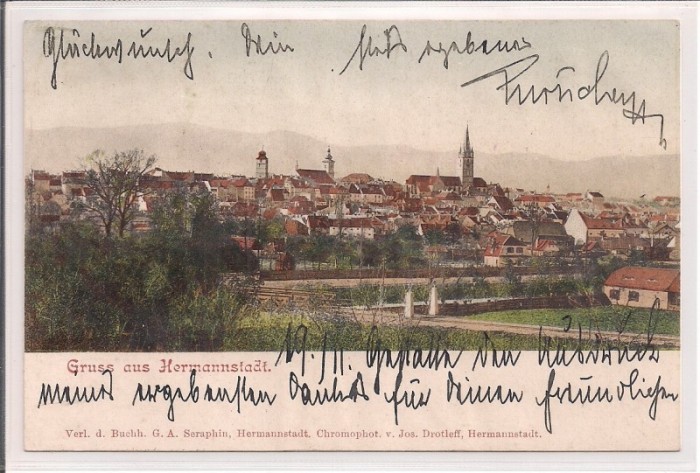 Glückwunsch. Dein stets ergebener
Gruss aus Hermannstadt.
19/II. Gestatte den Ausdruck
meines ergebensten Dankes für Deinen freundlichen
Verl. d. Buchh. G. A. Seraphin, Hermannstadt. Chromophot. v. Jos. Drotleff, Hermannstadt.